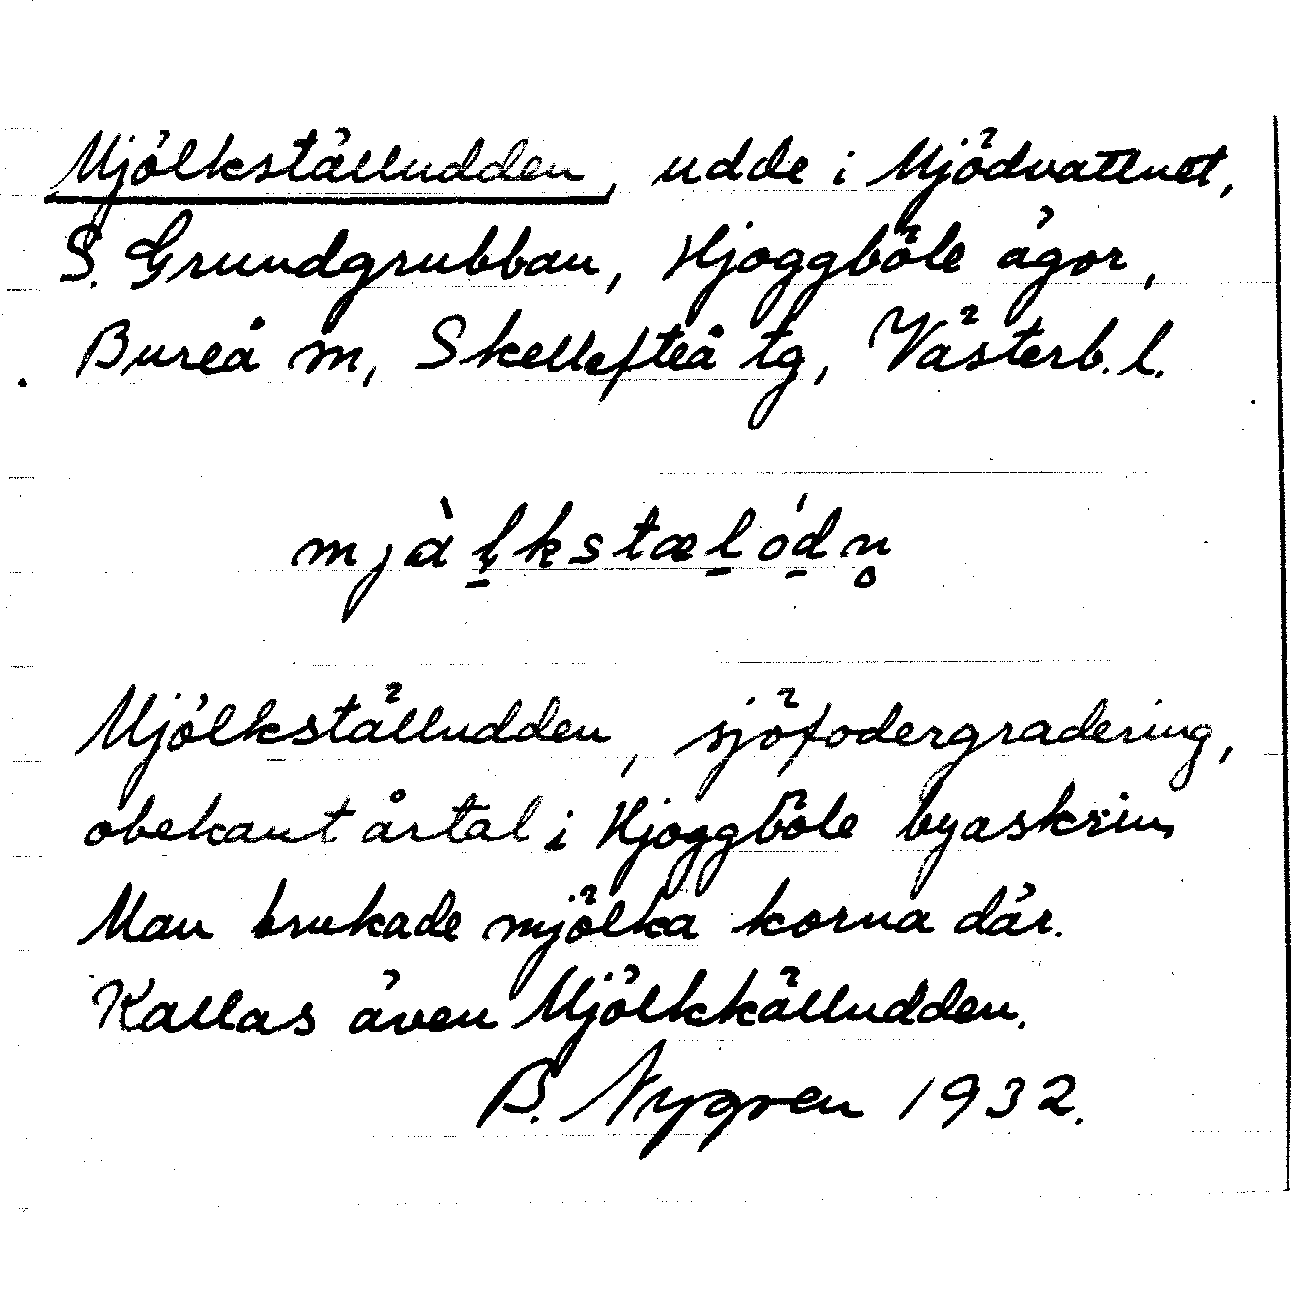 Mjölkställudden, udde i Mjödvattnet,
S. Grundgrubban, Hjoggböle ägor,
Bureå sn, Skellefteå tg, Västerb. l.
mjàl̥kstælódn̥
Mjölkställudden, sjöfodergradering,
obekant årtal i Hjoggböle byaskrin,
Man brukade mjölka korna där.
Kallas även Mjölkkälludden.
B. Nygren 1932.